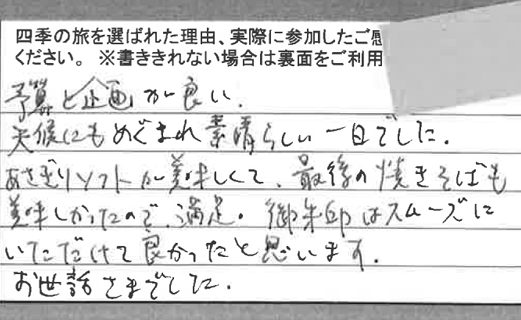 四季の旅を選ばれた理由、実際に参加したご感
ください。 ※書ききれない場合は裏面をご利用
予算と企画が良い.
天候にもめぐまれ素晴らしい一日でした.
あさぎりソフトが美味しくて、最後の焼きそばも
美味しかったので、満足。御朱印はスムーズに
いただけて良かったと思います.
お世話さまでした.